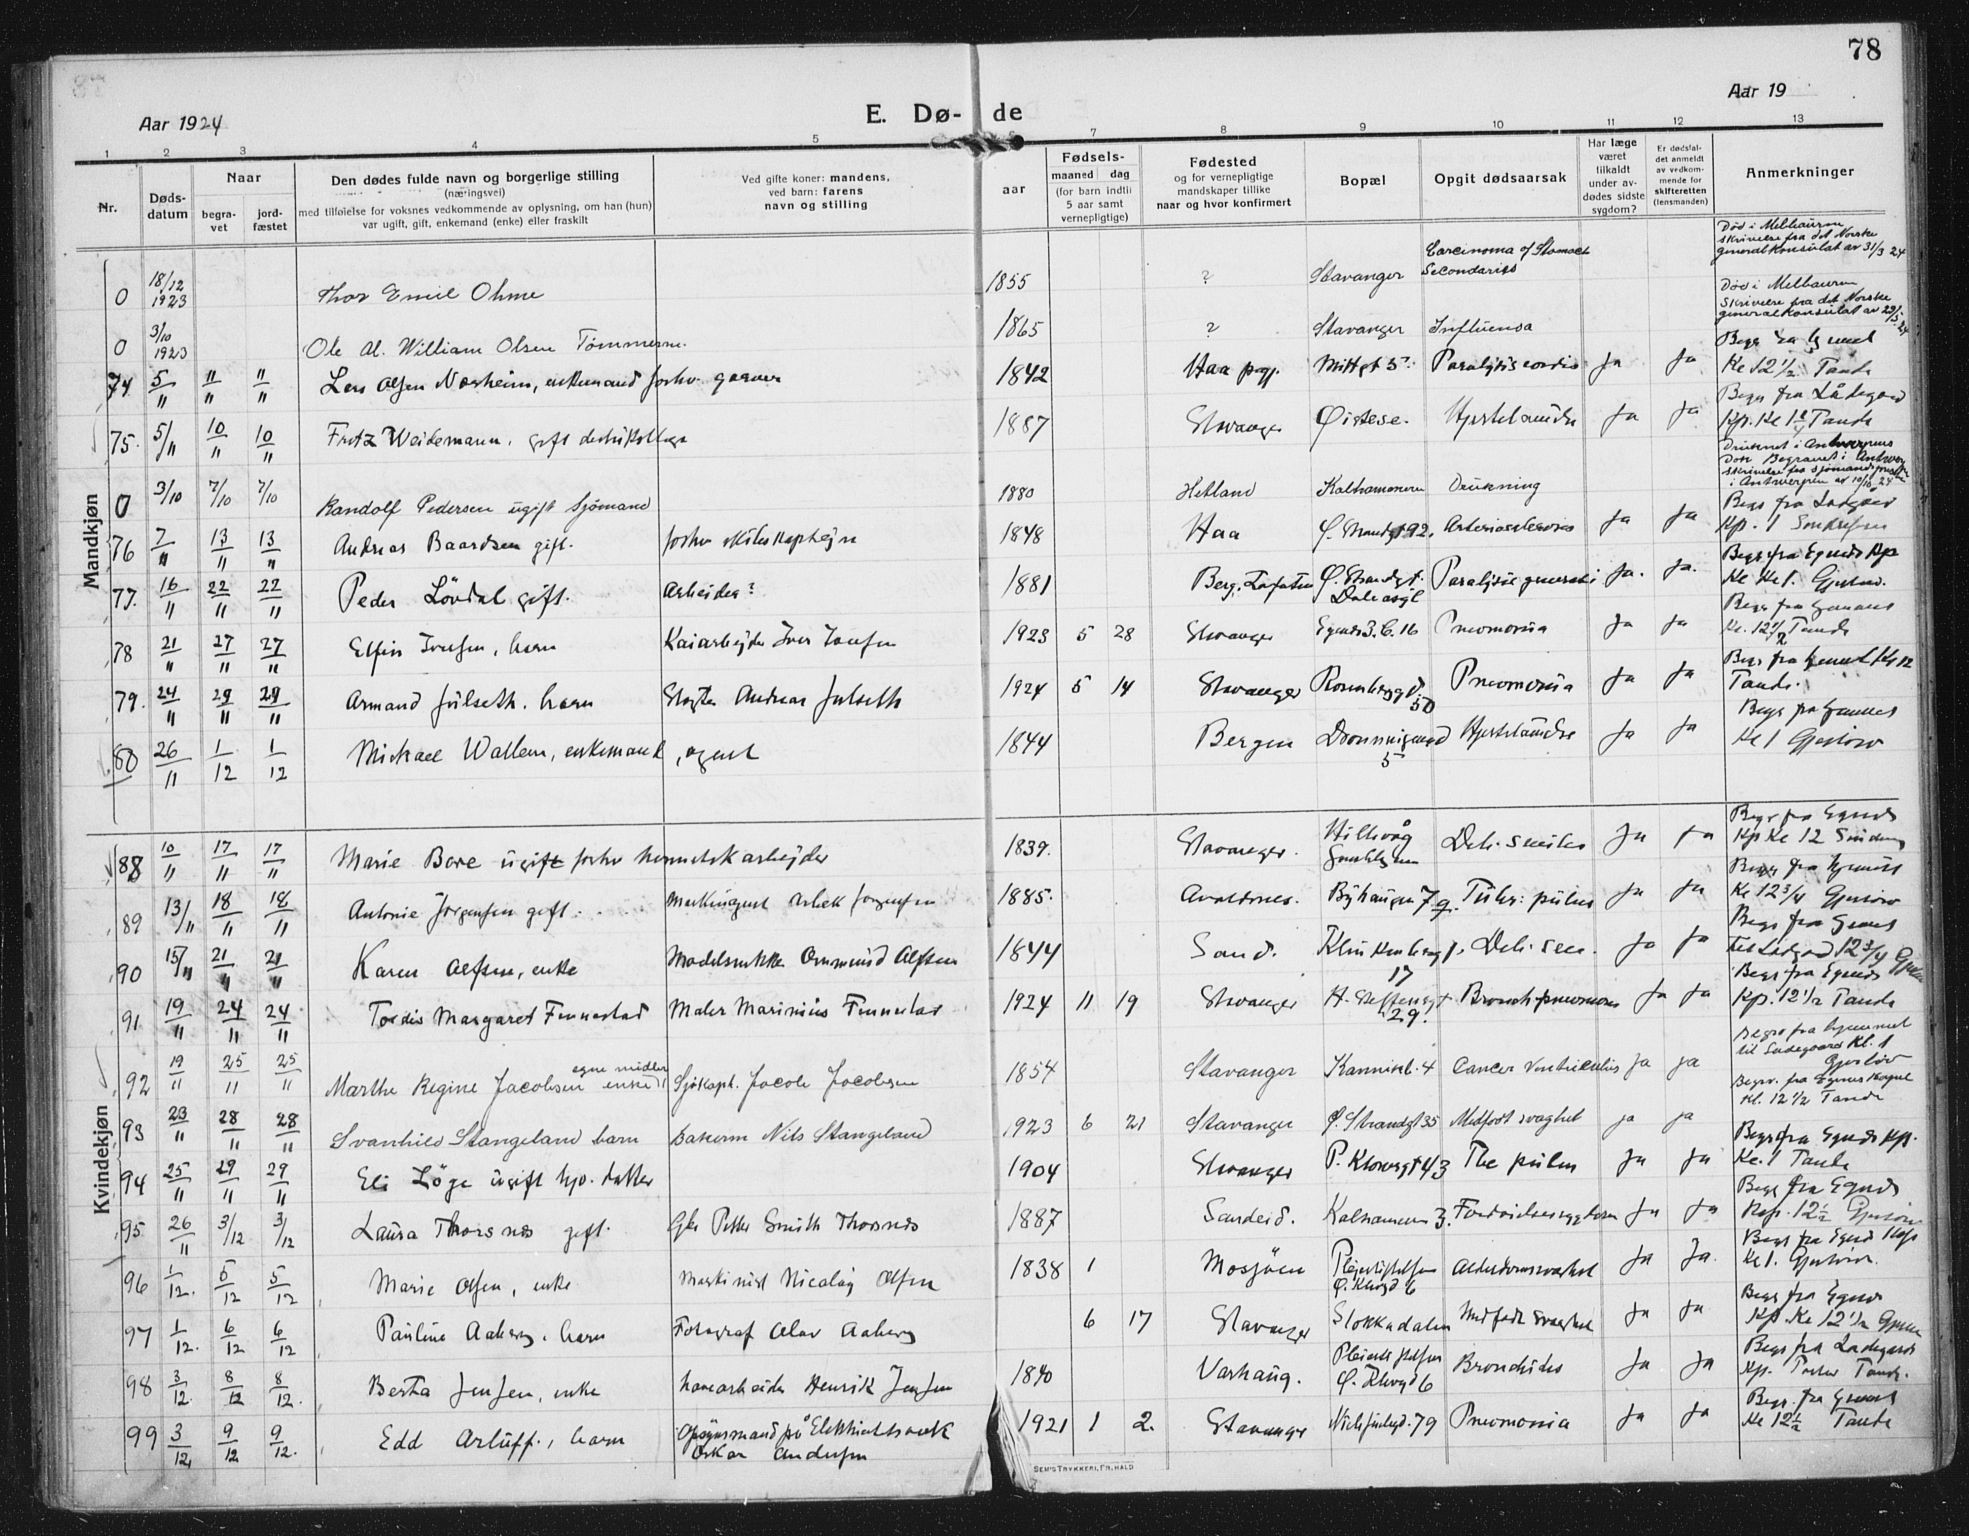 78
Aar 1924
E. Dø- de
Aar 19
1 2 3 4 5 6 7 8 9 10 11 12 13
Nr.
Døds-
datum
Naar
begra-
vet
jord-
fæstet
Den dødes fulde navn og borgerlige stilling
(næringsvei)
med tilføielse for voksnes vedkommende av oplysning, om han (hun)
var ugift, gift, enkemand (enke) eller fraskilt
Ved gifte koner: mandens,
ved barn: farens
navn og stilling
aar
Fødsels-
maaned dag
(for barn indtil
5 aar samt
vernepligtige)
Fødested
og for vernepligtige
mandskaper tillike
naar og hvor konfirmert
Bopæl
Opgit dødsaarsak
Har læge
været
tilkaldt
under av-
dødes sidste
sygdom?
Er dødsfal-
det anmeldt
av vedkom-
mende for
skifteretten
(lensmanden)
Anmerkninger
Mandkjøn
0 18/12 1923 Thor Emil Ohme 1855 ? Stavanger Carcinoma of Stomach Secondaries Død i Melbaurn skrivelse fra det Norske generalkonsulat av 31/3 24
0 3/10 1923 Ole Al. William Olsen Tømmerm. 1865 ? Stavanger Influensa Død i Melbaurn Skrivelse fra det Norske generalkonsulat av
74 5/11 " " Lars Olsen Nærheim, enkemand forhv. garver 1842 Haa pgj. Paralysis cordis Ja Ja Kl 12 1/2 Tande
75. 5/11 10/11 10/11 Fritz Weidemann, gift 1887 Stavanger Øistese. Hjertelamelse Ja Ja Begr fra Ladegaard Kp. Kl 1 Tande
0 3/10 7/10 7/10 Randolf Pedersen ugift Sjømand 1880 Hetland Kalhammeren Drukning Druknet i Antwerpens Dok Begravet i Antwer skrivelse fra sjømandspresten i Antwerpen av 10/10 24
76 7/11 13/11 13/11 Andreas Baardsen gift. forhv skibskaptejn 1848 Haa Ø. Strandgt 92. Arteriosclerosis Ja Ja Begr fra Ladgård Kp. 1
77. 16/11 22/11 22/11 Peder Løvdal gift. Arbeider? 1881 Berg. Lofoten Ø. Strandgt. Paralysie generali Ja. Ja. Begr fra Egends Kp Kl 1. Gjerløw.
78 21/11 27/11 27/11 Elfin Iversen, barn Kaiarbejder Iver Iversen 1923 5 28 Stavanger Egends 3. C. 16 Pneumonia Ja Ja Kl. 12 1/2 Tande
79. 24/11 29/11 29/11 Armand Julseth. barn Slagter Andreas Julseth 1924 5 14 Stavanger Rosenberggd. 50 Pneumonia Ja Ja Tande.
80 26/11 1/12 1/12 Mickael Wallem, enkemand, agent 1844 Bergen Dronningensgd 5 Hjertelamelse Ja Ja Kl 1 Gjerløw
Kvindekjøn
88 10/11 17/11 17/11 Marie Bore ugift forhv hermetikarbejder 1839. Stavanger. Hillevåg Deb. senilis Ja Ja Begr fra Egends Kp Kl 12
89 13/11 18/11 18/11 Antonie Jørgensen gift. 1885. Avaldsnes. Byhaugen 79. Tuber: pulm Ja Ja Kl 12 3/4 Gjerløw
90 15/11 21/11 21/11 Karen Alfsen, enke Modelsnekker Ommund Alfsen 1844 Sand. Klinkenberg 17 Deb. sen. Ja Ja til Ladgard 12 3/4
91 19/11 24/11 24/11 Tordis Margaret Finnestad Maler Marinius Finnestad 1924 11 19 Stavanger H. Steffensgt 29. Bronch-pneumoni Ja Ja Begr fra Egends Kp. 12 1/2 Tande
92 19/11 25/11 25/11 Marthe Regine Jacobsen egne midler enke Sjøkapt. Jacob Jacobsen 1854 Stavanger Kannikb. 4 Cancer Ventriculis Ja Ja Begr fra hjemmet til Ladegaard Kl. 1 Gjerløw
93 23/11 28/11 28/11 Svanhild Stangeland barn Bakerm Nils Stangeland 1923 6 21 Stavanger Ø. Strandgt 35 Medfødt svaghet ja ja Begr. fra Egenes Kapel Kl. 12 1/2 Tande
94 25/11 29/11 29/11 Eli Løge ugift hjv. datter 1904 Stavanger P. Klowsgt 43 Tbc pulm Ja Ja Begr fra Egends Kp. Kl. 1 Tande
95 26/11 3/12 3/12 Laura Thorsnes gift. Petter Smith Thorsnes 1887 Sandeid. Kalhammer 3. Ja Ja Begr fra Egends Kap. 12 1/2 Gjerløw
96 1/12. 5/12 5/12 Marie Olsen, enke Maskinist Nicolay Olsen 1838 1 Mosjøen Ø. Klevgt 6 Alderdomssvakhet Ja Ja. Begr fra Egends Kap Kl 1. Gjerløw.
97 1/12. 6/12 6/12 Pauline Aaberg, barn Fotograf Olav Aaberg 6 17 Stavanger Stokkadalen Medfødt svaghet Ja Ja Begr fra Egends Kp. Kl 12 1/2
98 3/12. 8/12 8/12. Berta Jensen, enke havnearbeider Henrik Jensen 1840 Varhaug. Ø. Klevgt 6 Bronchitis Ja Ja Begr fra Ladegaards Kp. Tande.
99 3/12 9/12 9/12. Edd Arluff., barn Opsynsmand på Elektricitetsverk Oskar Andersen 1921 1 2. Stavanger 79 Pneumonia Ja Ja Kl 12 1/2 Tande
SEM'S TRYKKERI, FR. HALD